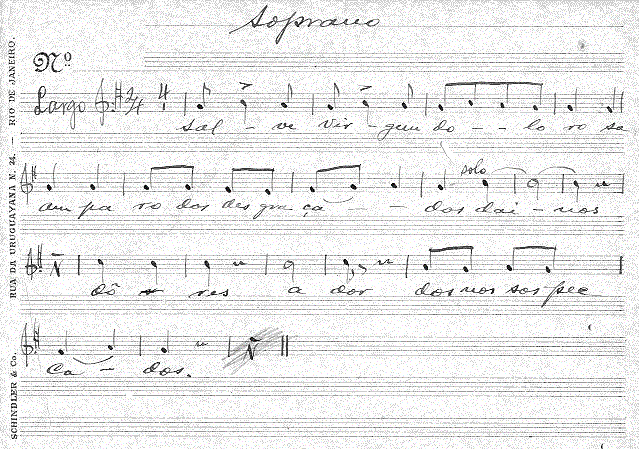 Soprano
Nº
Largo 2/4 4
sal - ve vir - gem do - - lo ro sa
am pa ro dos des gra ça - - dos dai - nos
dô res a dor dos nos sos pec
ca - dos.
SCHINDLER & Co. RUA DA URUGUAYANA N. 24. — RIO DE JANEIRO.